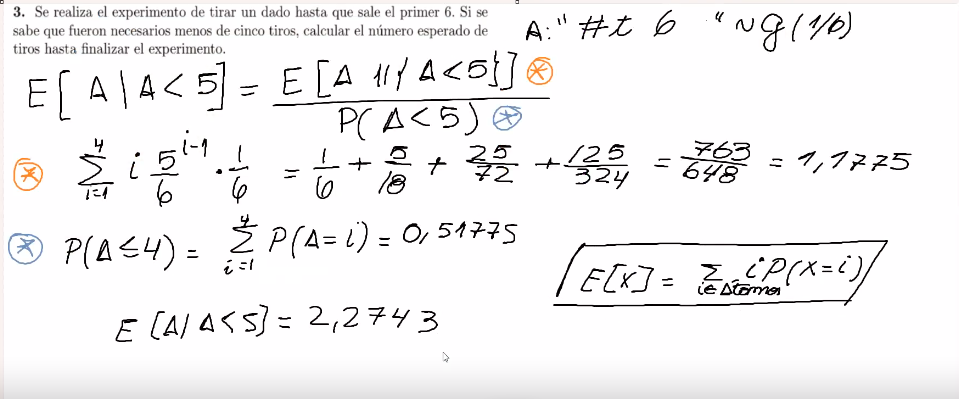 3. Se realiza el experimento de tirar un dado hasta que sale el primer 6. Si se
sabe que fueron necesarios menos de cinco tiros, calcular el número esperado de
tiros hasta finalizar el experimento.
A: "#t 6 " ~ g(1/6)
E[A|A<5] = E[A 1{A<5}] / P(A<5)
∑_{i=1}^{4} i 5/6^{i-1} · 1/6 = 1/6 + 5/18 + 25/72 + 125/324 = 763/648 = 1,1775
P(A≤4) = ∑_{i=1}^{4} P(A=i) = 0,51775
E[X] = ∑_{i∈Átomos} i P(X=i)
E[A/A<5] = 2,2743